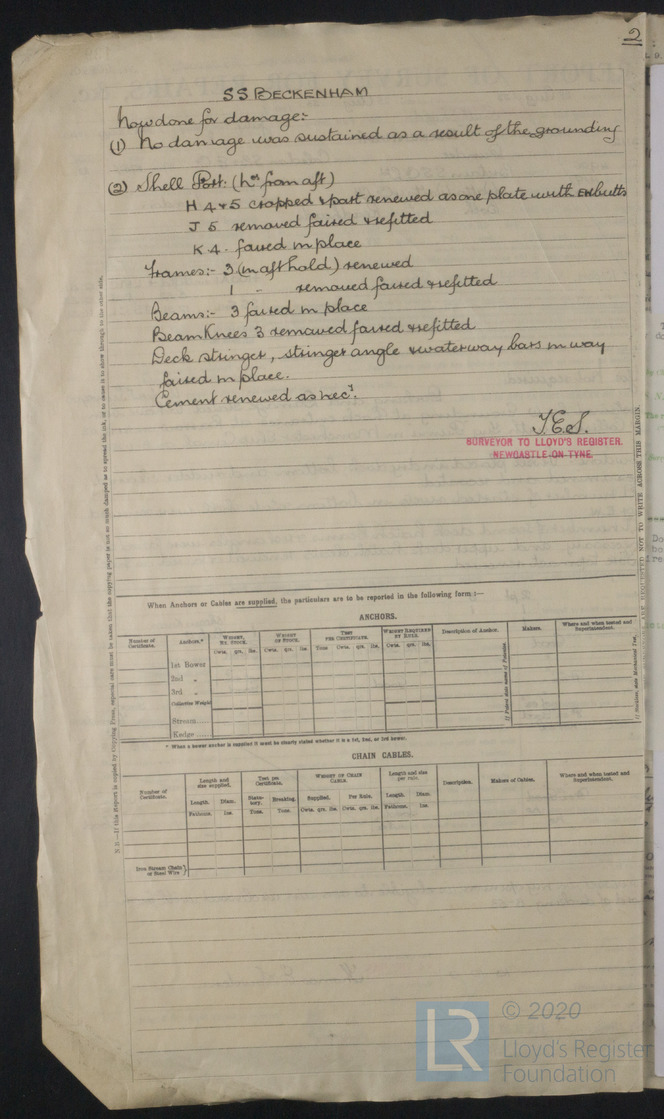 2
SS BECKENHAM
Now done for damage:-
(1) No damage was sustained as a result of the grounding
(2) Shell Port: (nos from aft)
H 4 & 5 cropped & part renewed as one plate with butts
J 5 removed faired & refitted
K 4 . faired in place
Frames:- 3 (in aft hold) renewed
1 " removed faired & refitted
Beams:- 3 faired in place
Beam Knees 3 removed faired & refitted
Deck stringer, stringer angle & waterway bars in way
faired in place.
Cement renewed as necy.
J.E.S.
SURVEYOR TO LLOYD'S REGISTER.
NEWCASTLE-ON-TYNE.
When Anchors or Cables are supplied, the particulars are to be reported in the following form :—
ANCHORS.
Number of Certificate. Anchors.* WEIGHT, EX. STOCK. WEIGHT OF STOCK. TEST PER CERTIFICATE. WEIGHT REQUIRED BY RULE. Description of Anchor. Makers. Where and when tested and Superintendent.
Cwts. qrs. lbs. Cwts. qrs. lbs. Tons Cwts. qrs. lbs. Cwts. qrs. lbs.
1st Bower
2nd "
3rd "
Collective Weight
Stream
Kedge
* When a bower anchor is supplied it must be clearly stated whether it is a 1st, 2nd, or 3rd bower.
CHAIN CABLES.
Number of Certificate. Length and size supplied. Test per Certificate. WEIGHT OF CHAIN CABLE. Length and size per rule. Description. Makers of Cables. Where and when tested and Superintendent.
Length. Diam. Statutory. Breaking. Supplied. Per Rule. Length. Diam.
Fathoms. Ins. Tons. Tons. Cwts. qrs. lbs. Cwts. qrs. lbs. Fathoms. Ins.
Iron Stream Chain or Steel Wire }
LR
© 2020
Lloyd's Register
Foundation